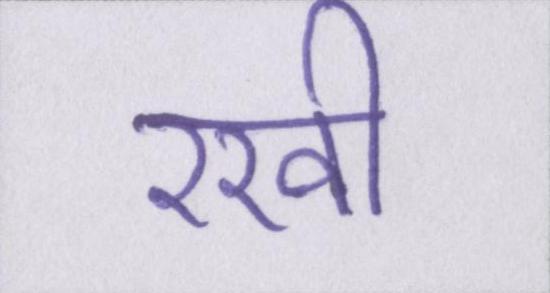 रखी